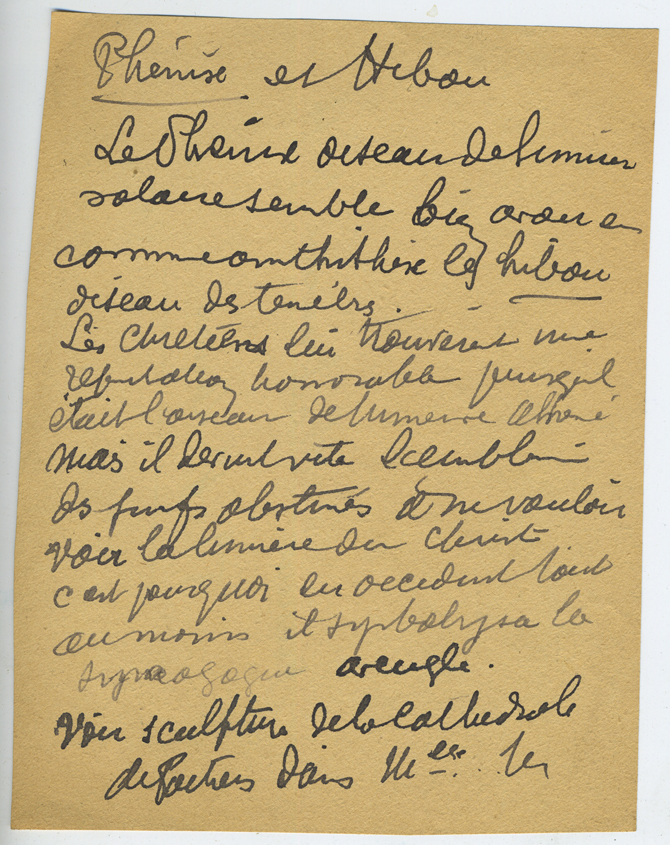 Phénise et Hibou
Le Phénix oiseau de lumier
solaire semble bien avoir eu
comme anthithèse le hibou
oiseau des tenèbrs.
Les Chretiens lui trouvèrent une
reputation honorable puisqu'il
était l'oiseau de lumeire Athené
mais il devint vite l'emblème
des juifs obstinés à ne vouloir
voir la lumière du Christ
c'est pourquoi en occident tout
au moins il symbolysa la
synagogue aveugle.
Voir sculpture de la Cathédrale
de Poitiers dans